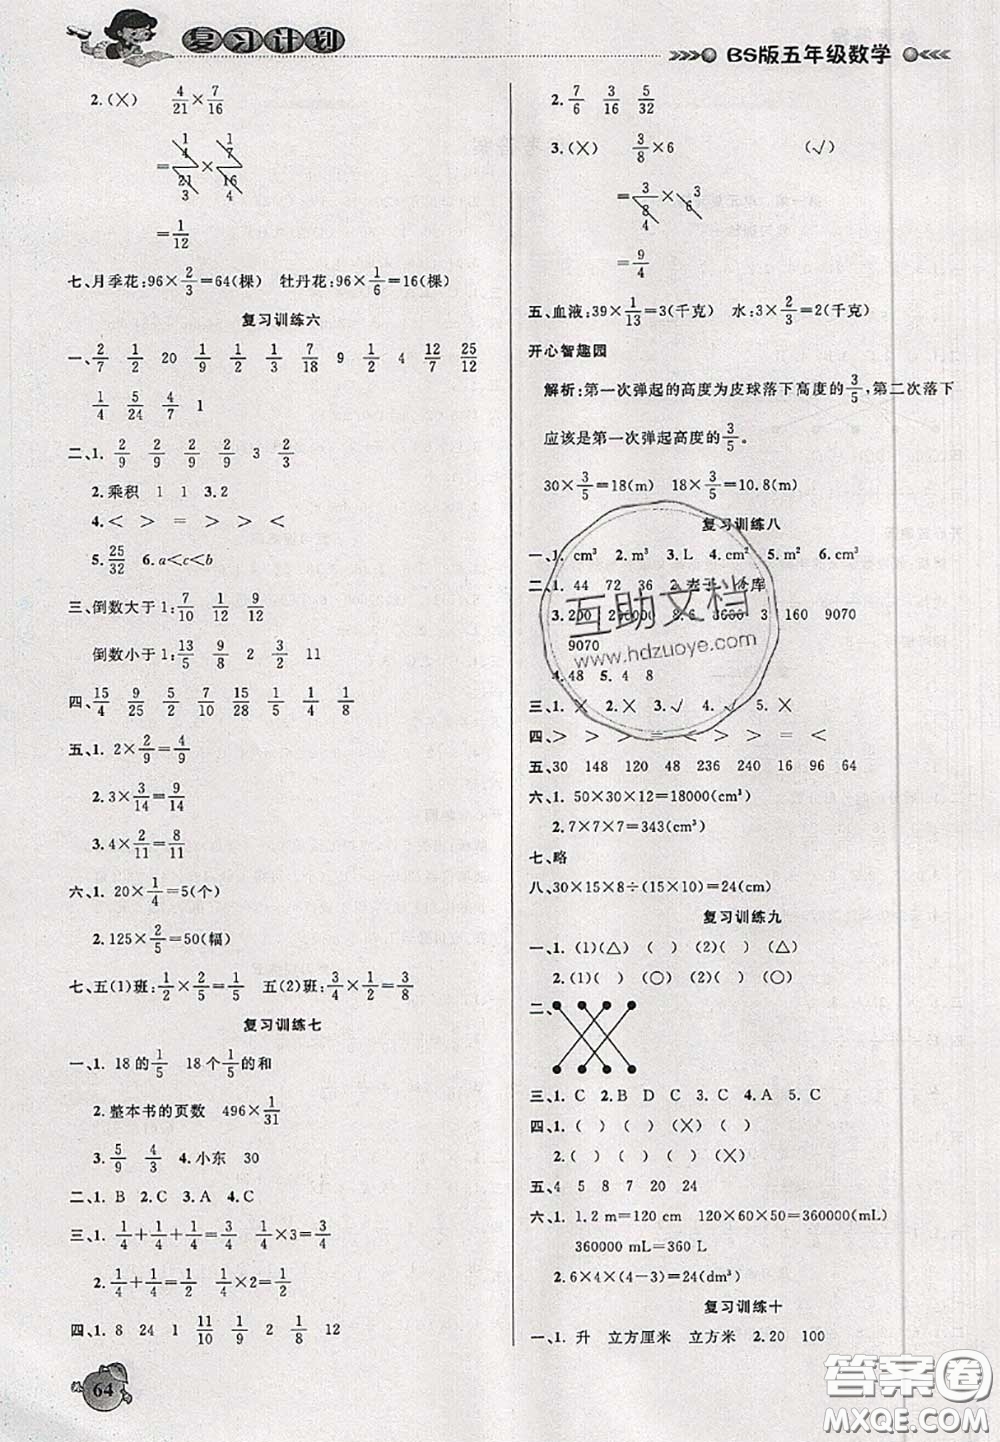 复习计划
BS版五年级数学
2.(×) 4/21×7/16
=1/3×1/4
=1/12
七、月季花:96×2/3=64(棵) 牡丹花:96×1/6=16(棵)
复习训练六
一、2/7 1/2 20 1/9 1/2 1/3 7/18 9 1/2 4 12/7 25/12
1/4 5/24 4/7 1
二、1. 2/9 2/9 2/9 2/9 3 2/3
2.乘积 1 1 3.2
4.< > = > > <
5.25/32 6.a<c<b
三、倒数大于1:7/10 1/12 8/9
倒数小于1:13/5 9/8 2 11
四、15/4 9/25 5/2 7/10 1/9 1/5 1/4 1/8
五、1. 2×2/9=4/9
2.3×3/14=9/14
3.4×2/11=8/11
六、1. 20×1/4=5(个)
2.125×2/5=50(幅)
七、五(1)班:1/2×2/5=1/5 五(2)班:3/4×1/2=3/8
复习训练七
一、1. 18的1/5 18个1/5的和
2.整本书的页数 496×1/31
3.5/9 4/3 4.小东 30
二、1. B 2.C 3.A 4.C
三、1. 1/4+1/4+1/4=3/4 1/4×3=3/4
2.1/4+1/4=1/2 1/4×2=1/2
四、1. 8 24 1 11/10 1/9 2 1/8 12
64
2.7/6 3/16 5/32
3.(×) 3/8×6 (√)
=3/4×3
=9/4
五、血液:39×1/13=3(千克) 水:3×2/3=2(千克)
开心智趣园
解析:第一次弹起的高度为皮球落下高度的3/5,第二次落下
应该是第一次弹起高度的3/5。
30×3/5=18(m) 18×3/5=10.8(m)
复习训练八
一、1. cm³ 2.m³ 3.L 4.cm² 5.m² 6.cm³
二、1. 44 72 36 2.
3.200 8.6 3 160 9070
9070
4.48 5.4 8
三、1.× 2.× 3.√ 4.√ 5.×
四、> > > = < =
五、30 148 120 48 236 240 16 96 64
六、1. 50×30×12=18000(cm³)
2.7×7×7=343(cm³)
七、略
八、30×15×8÷(15×10)=24(cm)
复习训练九
一、1. (1)(△) ( ) ( ) (2)( ) (△)
2.(1)( ) (○) (2)( ) (○)
二、
三、1. C 2.B D C 3.C 4.A 5.C
四、1. ( ) ( ) (×) ( )
2.( ) ( ) ( ) (×)
五、4 5 8 7 20 24
六、1. 1.2 m=120 cm 120×60×50=360000(mL)
360000 mL=360 L
2.6×4×(4-3)=24(dm³)
复习训练十
一、1. 升 立方厘米 立方米 2.20 100
互助文档
www.hdzuoye.com
答案卷
MXQE.COM